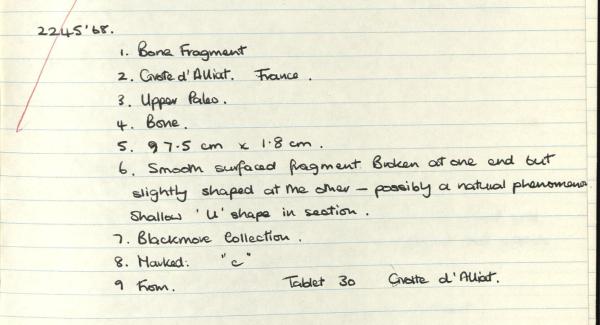 2245'68.
1. Bone Fragment
2. Grotte d'Alliat. France.
3. Upper Paleo.
4. Bone.
5. 7.5 cm x 1.8 cm.
6. Smooth surfaced fragment. Broken at one end but
slightly shaped at the other – possibly a natural phenomena
Shallow 'U' shape in section.
7. Blackmore Collection.
8. Marked: "c"
9 From. Tablet 30 Grotte d'Alliat.